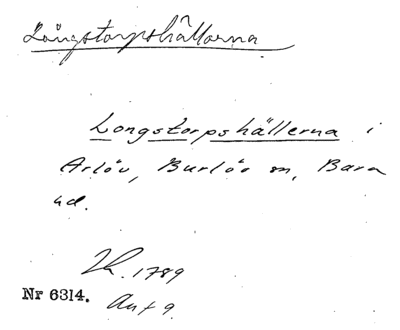 Långstorpshällorna
Longstorpshällerna i
Arlöv, Burlövs sn, Bara
hd.
1789
Nr 6314.